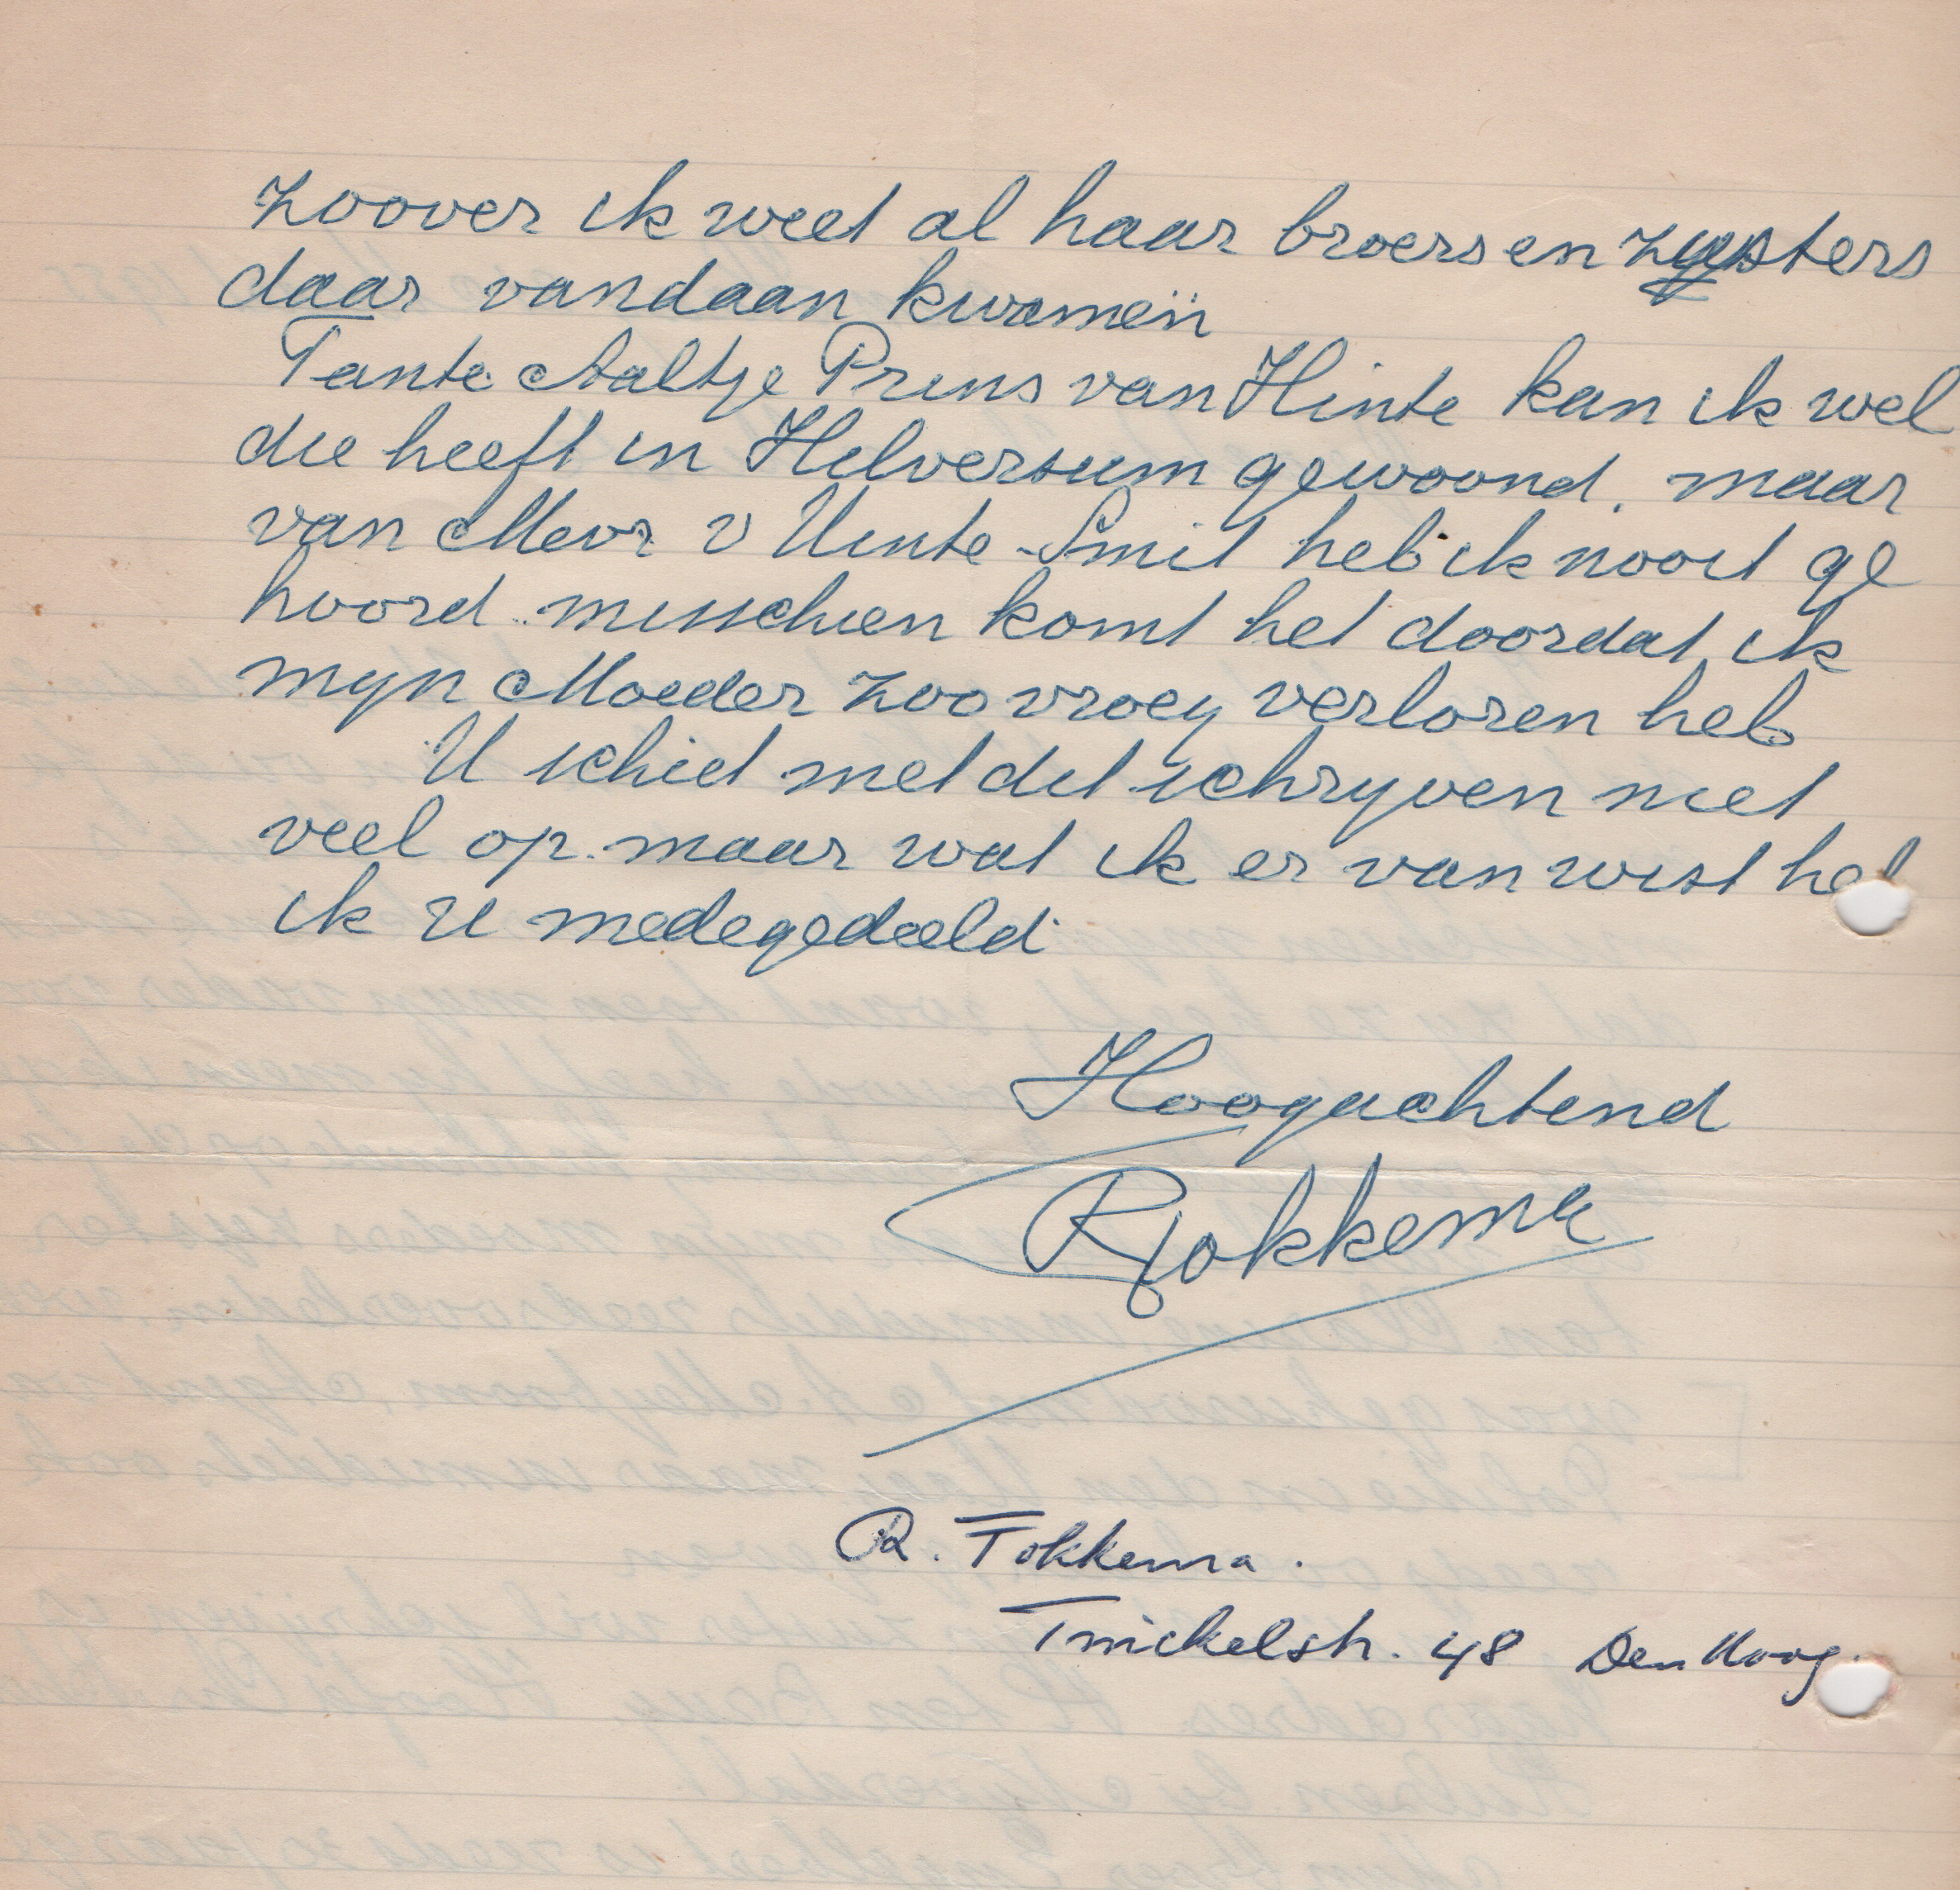 zoover ik weet al haar broers en zysters
daar vandaan kwamen
Tante Aaltje Prins van Hinte kan ik wel
die heeft in Hilversum gewoond. maar
van Mevr v Hinte-Smit heb ik nooit ge
hoord misschien komt het doordat ik
myn Moeder zoo vroeg verloren heb
U schiet met dit schryven niet
veel op. maar wat ik er van wist heb
ik U medegedeeld
Hoogachtend
RFokkema
R. Fokkema.
Twickelstr. 48 Den Haag.